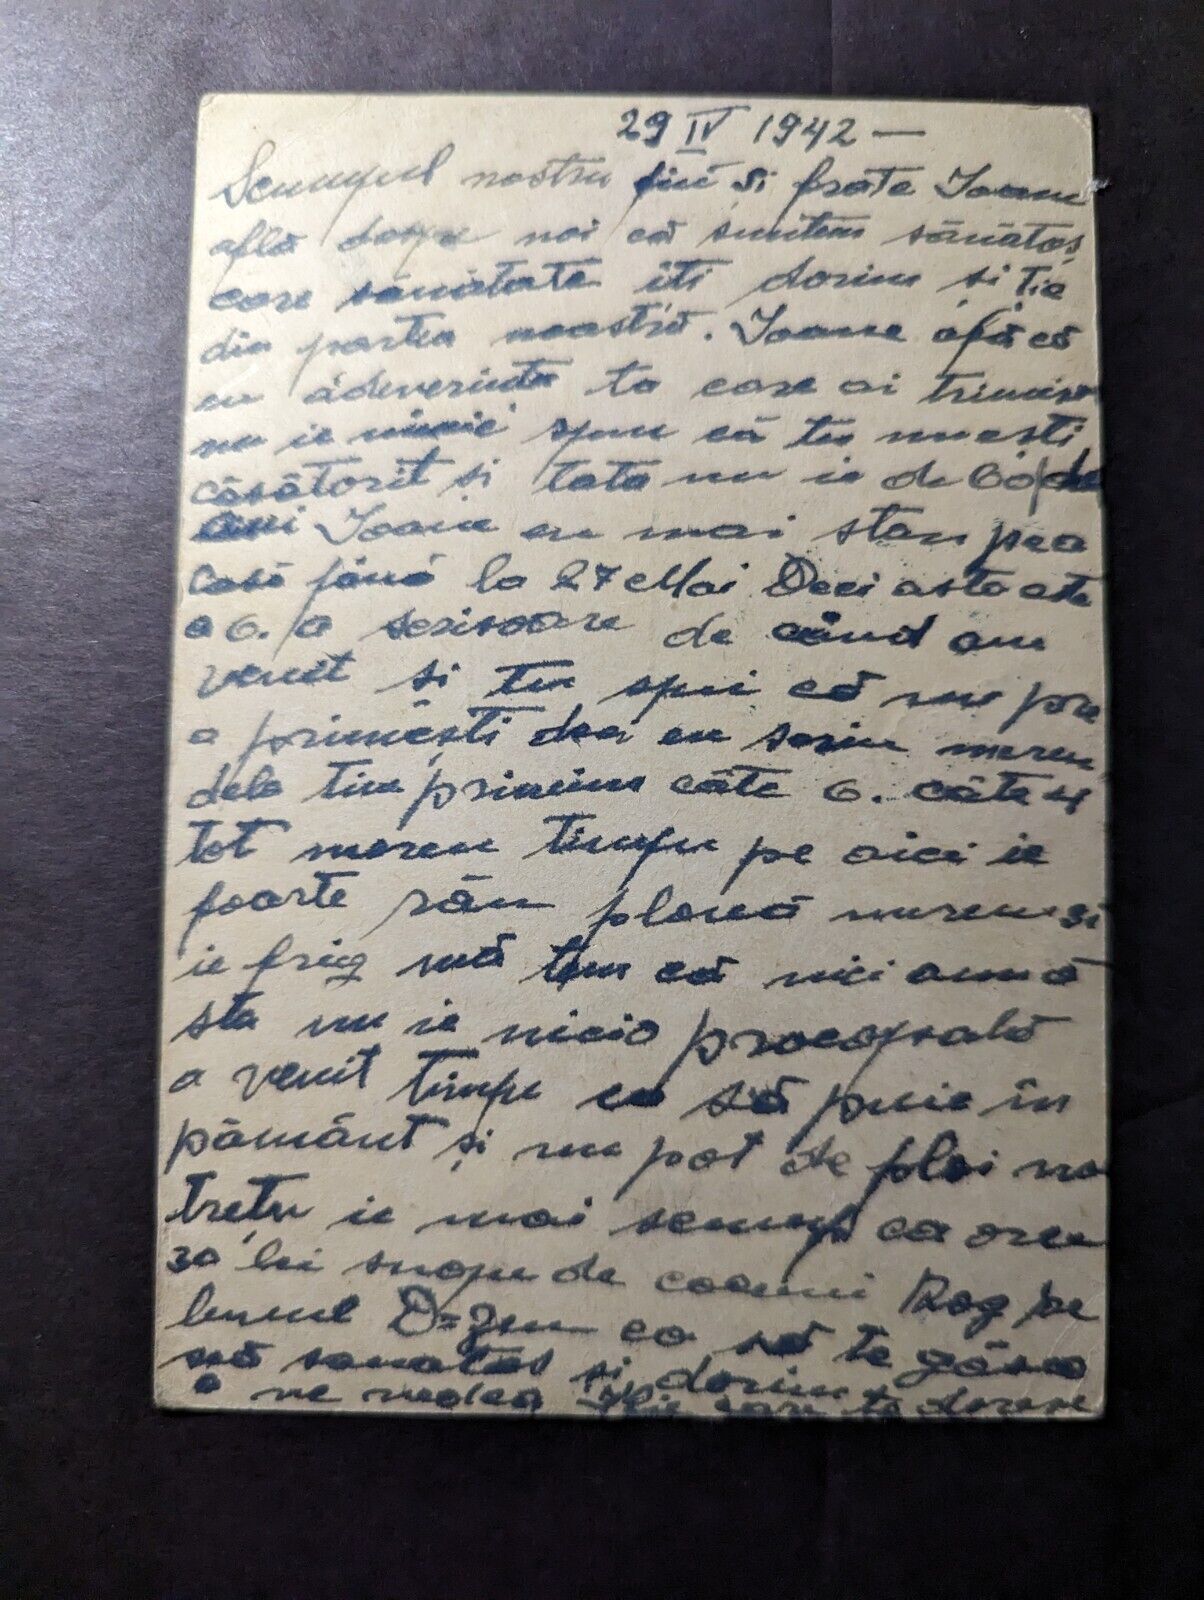 29 IV 1942 —
Scumpul nostru fiu si frate Ioane
află despe noi că suntem sănătoș
care sănătate iti dorim si tie
din partea noastră. Ioane află că
cu adeverinta ta care ai trimis
nu ie nimic spun că tu nu esti
căsătorit si tata nu ie de 60 de
ani Ioane eu mai stau pea
casă până la 27 Mai Deci asta este
a 6. a scrisoare de când am
venit si tu spui că nu pre
a primești dea eu scriu mereu
dela tine primim câte 6. câte 4
tot mereu timpu pe aici ie
foarte rău plouă mereu si
ie frig mă tem că nici anu ă
sta nu ie nicio procopsală
a venit timpu ca să puie în
pământ și nu pot de ploi nu
trețu ie mai scump ca ore
za lui snopu de coceni Rog pe
bunul D-zeu ca să te găsea
scă sanatos si dorim
a ne vedea Ilie care te doreste